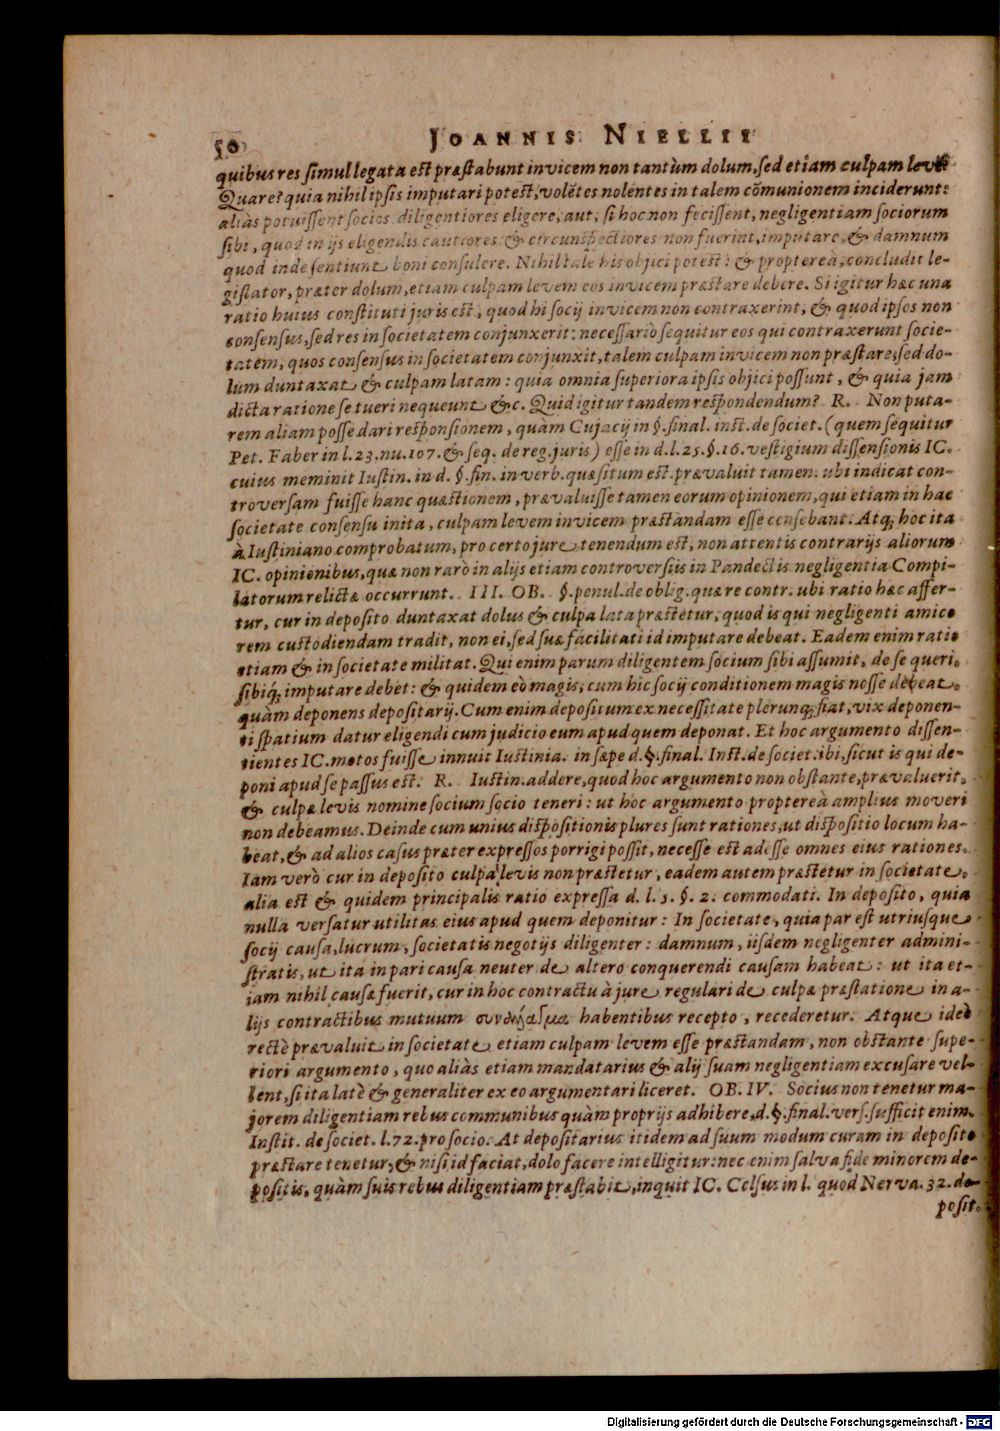 50 JOANNIS NIELLII
quibus res simul legata est præstabunt invicem non tantùm dolum, sed etiam culpam levẽ.
Quare? quia nihil ipsis imputari potest, volẽtes nolentes in talem cõmunionem inciderunt:
aliàs potuissent socios diligentiores eligere, aut, si hoc non fecissent, negligentiam sociorum
sibi, quod in ijs eligendis cautiores & circunspectiores non fuerint, imputare, & damnum
quod inde sentiunt boni consulere. Nihil tale his objici potest: & propterea, concludit le-
gislator, præter dolum, etiam culpam levem eos invicem præstare debere. Si igitur hæc una
ratio huius constituti juris est, quod hi socij invicem non contraxerint, & quod ipsos non
consensus, sed res in societatem conjunxerit: necessariò sequitur eos qui contraxerunt socie-
tatem, quos consensus in societatem conjunxit, talem culpam invicem non præstare, sed do-
lum duntaxat & culpam latam: quia omnia superiora ipsis objici possunt, & quia jam
dicta ratione se tueri nequeunt &c. Quid igitur tandem respondendum? R. Non puta-
rem aliam posse dari responsionem, quàm Cujacij in §. final. inst. de societ. (quem sequitur
Pet. Faber in l. 23. nu. 107. & seq. de reg. juris) esse in d. l. 25. §. 16. vestigium dissensionis IC.
cuius meminit Iustin. in d. §. fin. in verb. quæsitum est. prævaluit tamen. ubi indicat con-
troversam fuisse hanc quæstionem, prævaluisse tamen eorum opinionem, qui etiam in hac
societate consensu inita, culpam levem invicem præstandam esse censebant. Atq; hoc ita
à Iustiniano comprobatum, pro certo jure tenendum est, non attentis contrarijs aliorum
IC. opinionibus, quæ non rarò in alijs etiam controversiis in Pandectis negligentia Compi-
latorum relictæ occurrunt. III. OB. §. penul. de oblig. quæ re contr. ubi ratio hæc affer-
tur, cur in deposito duntaxat dolus & culpa lata præstetur, quod is qui negligenti amico
rem custodiendam tradit, non ei, sed suæ facilitati id imputare debeat. Eadem enim ratio
etiam & in societate militat. Qui enim parum diligentem socium sibi assumit, de se queri,
sibiq́; imputare debet: & quidem eò magis, cum hic socij conditionem magis nosse debeat,
quàm deponens depositarij. Cum enim depositum ex necessitate plerunq; fiat, vix deponen-
ti spatium datur eligendi cum judicio eum apud quem deponat. Et hoc argumento dissen-
tientes IC. motos fuisse innuit Iustinia. in sæpe d. §. final. Inst. de societ. ibi, sicut is qui de-
poni apud se passus est. R. Iustin. addere, quod hoc argumento non obstante, prævaluerit,
& culpæ levis nomine socium socio teneri: ut hoc argumento propterea amplius moveri
non debeamus. Deinde cum unius dispositionis plures sunt rationes, ut dispositio locum ha-
beat, & ad alios casus præter expressos porrigi possit, necesse est adesse omnes eius rationes.
Iam verò cur in deposito culpa levis non præstetur, eadem autem præstetur in societate,
alia est & quidem principalis ratio expressa d. l. 5. §. 2. commodati. In deposito, quia
nulla versatur utilitas eius apud quem deponitur: In societate, quia par est utriusque
socij causa, lucrum, societatis negotijs diligenter: damnum, iisdem negligenter admini-
stratis, ut ita in pari causa neuter de altero conquerendi causam habeat: ut ita et-
iam nihil causæ fuerit, cur in hoc contractu à jure regulari de culpæ præstatione in a-
lijs contractibus mutuum habentibus recepto, recederetur. Atque ideò
rectè prævaluit in societate etiam culpam levem esse præstandam, non obstante supe-
riori argumento, quo aliàs etiam mandatarius & alij suam negligentiam excusare vel-
lent, si ita latè & generaliter ex eo argumentari liceret. OB. IV. Socius non tenetur ma-
jorem diligentiam rebus communibus quàm proprijs adhibere, d. §. final. vers. sufficit enim.
Instit. de societ. l. 72. pro socio. At depositarius itidem ad suum modum curam in deposito
præstare tenetur, & nisi id faciat, dolo facere intelligitur: nec enim salva fide minorem de-
positis, quàm suis rebus diligentiam præstabit, inquit IC. Celsus in l. quod Nerva. 32. de-
posit.
Digitalisierung gefördert durch die Deutsche Forschungsgemeinschaft - DFG